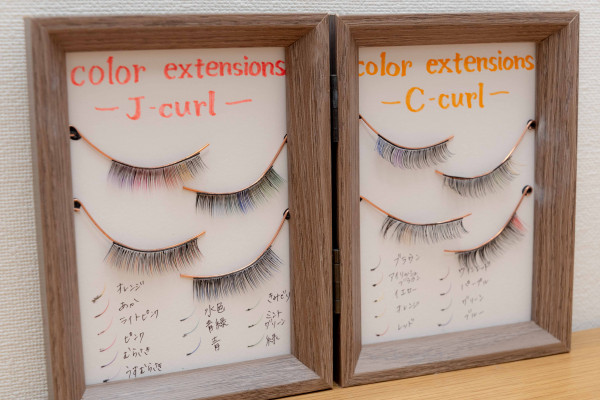 color extensions
- J-curl -
オレンジ
あか
ライトピンク
ピンク
むらさき
うすむらさき
水色
青緑
青
きみどり
ミント
グリーン
緑
color extensions
- C-curl -
ブラウン
イエロー
オレンジ
レッド
パープル
グリーン
ブルー